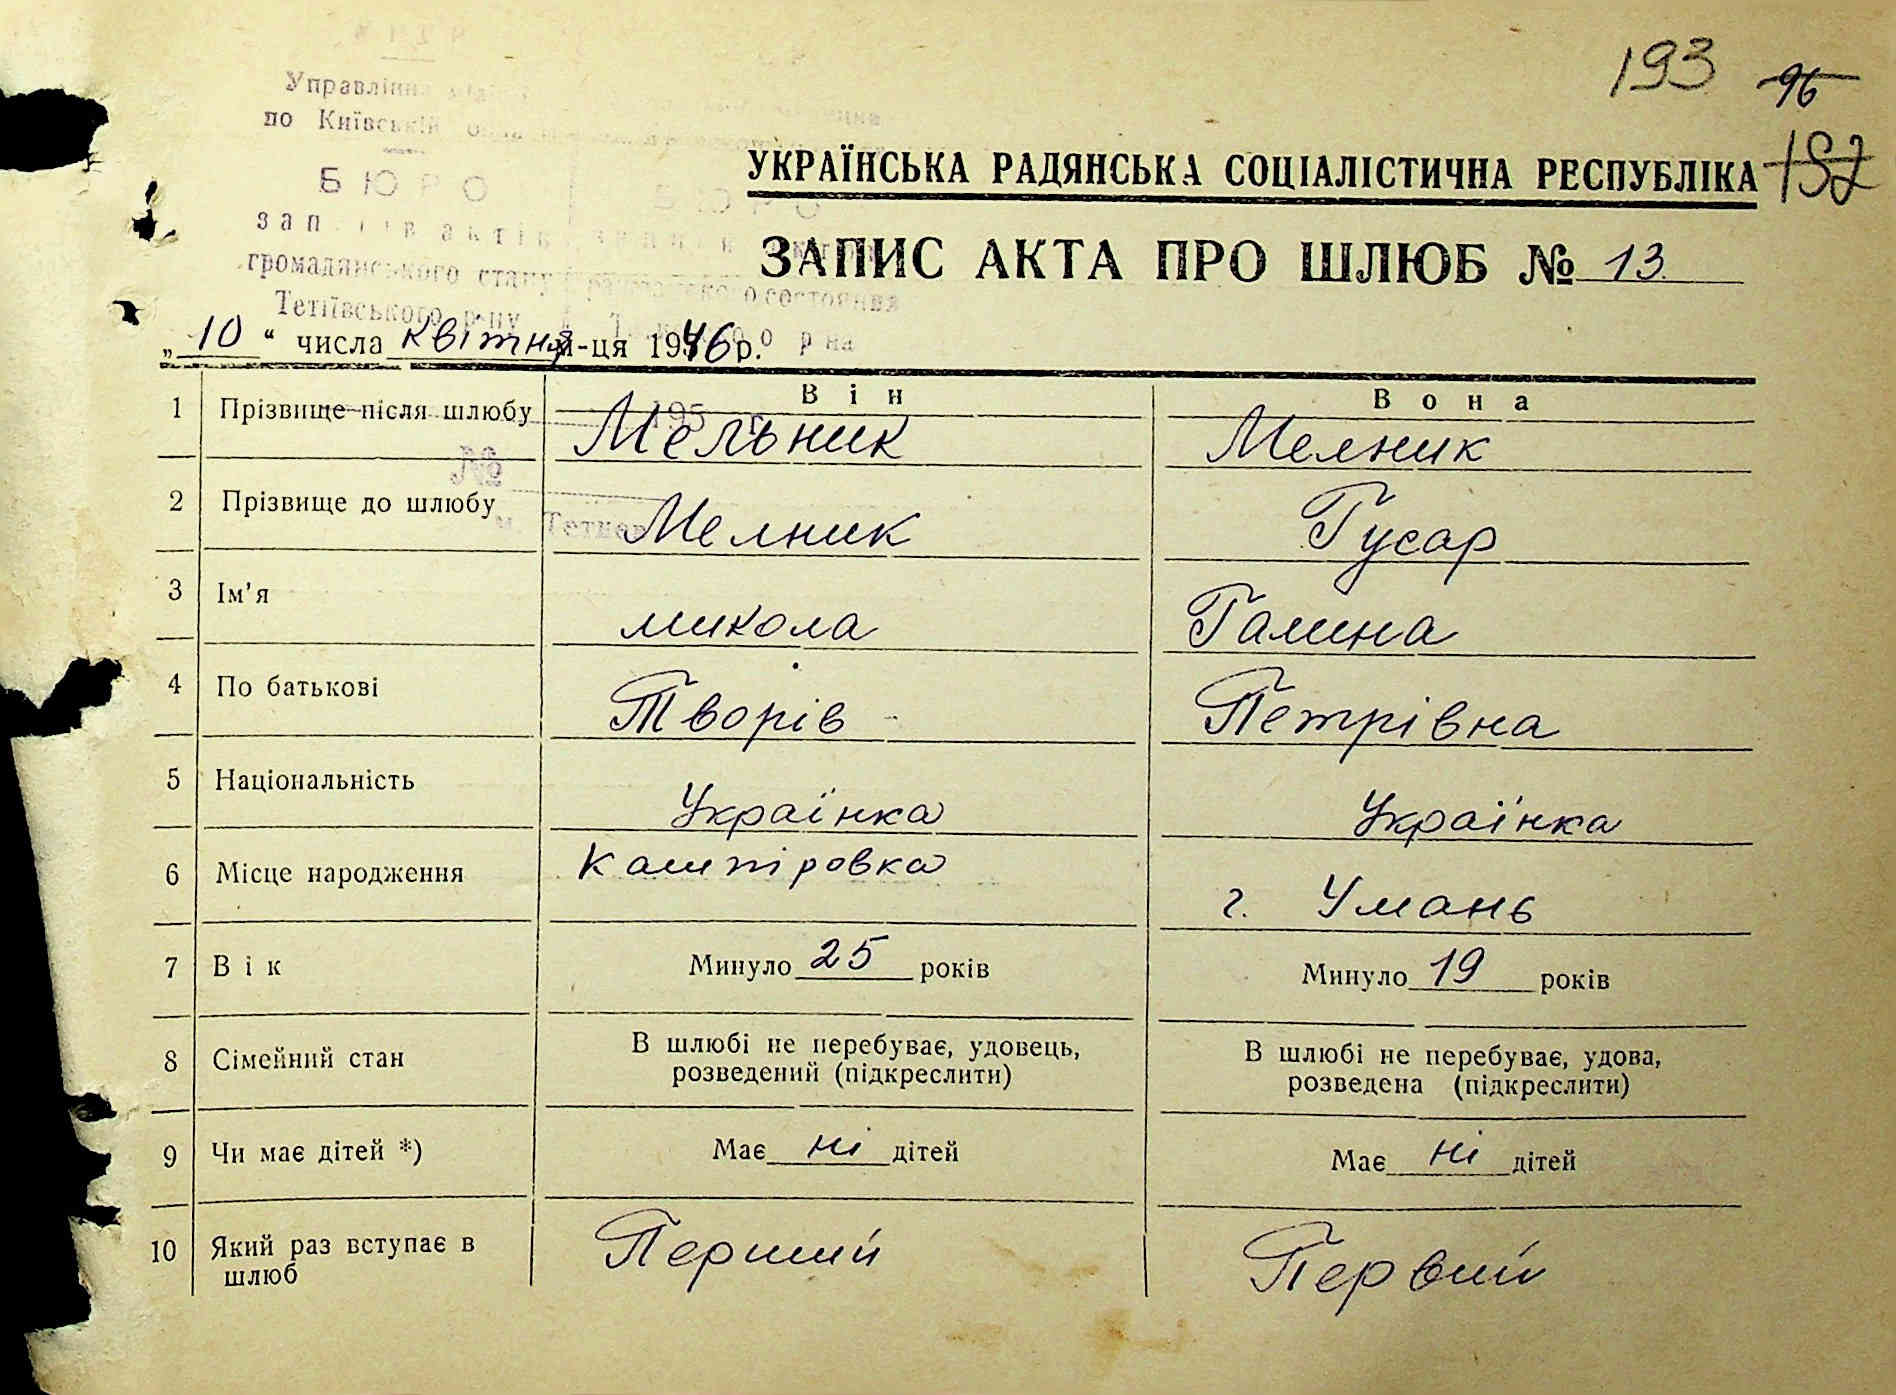 193 96
152
Управління
по Київській
БЮРО
записів актів
громадянського стану
Тетіївського р-ну
УКРАЇНСЬКА РАДЯНСЬКА СОЦІАЛІСТИЧНА РЕСПУБЛІКА
ЗАПИС АКТА ПРО ШЛЮБ № 13.
„10“ числа квітня м-ця 1946 р.
Він Вона
1 Прізвище після шлюбу Мельник Мелник
2 Прізвище до шлюбу Мелник Гусар
3 Ім'я микола Галина
4 По батькові Творів Петрівна
5 Національність Українка Українка
6 Місце народження Кашпіровка г. Умань
7 Вік Минуло 25 років Минуло 19 років
8 Сімейний стан В шлюбі не перебуває, удовець, В шлюбі не перебуває, удова,
розведений (підкреслити) розведена (підкреслити)
9 Чи має дітей *) Має ні дітей Має ні дітей
10 Який раз вступає в Перший Первий
шлюб